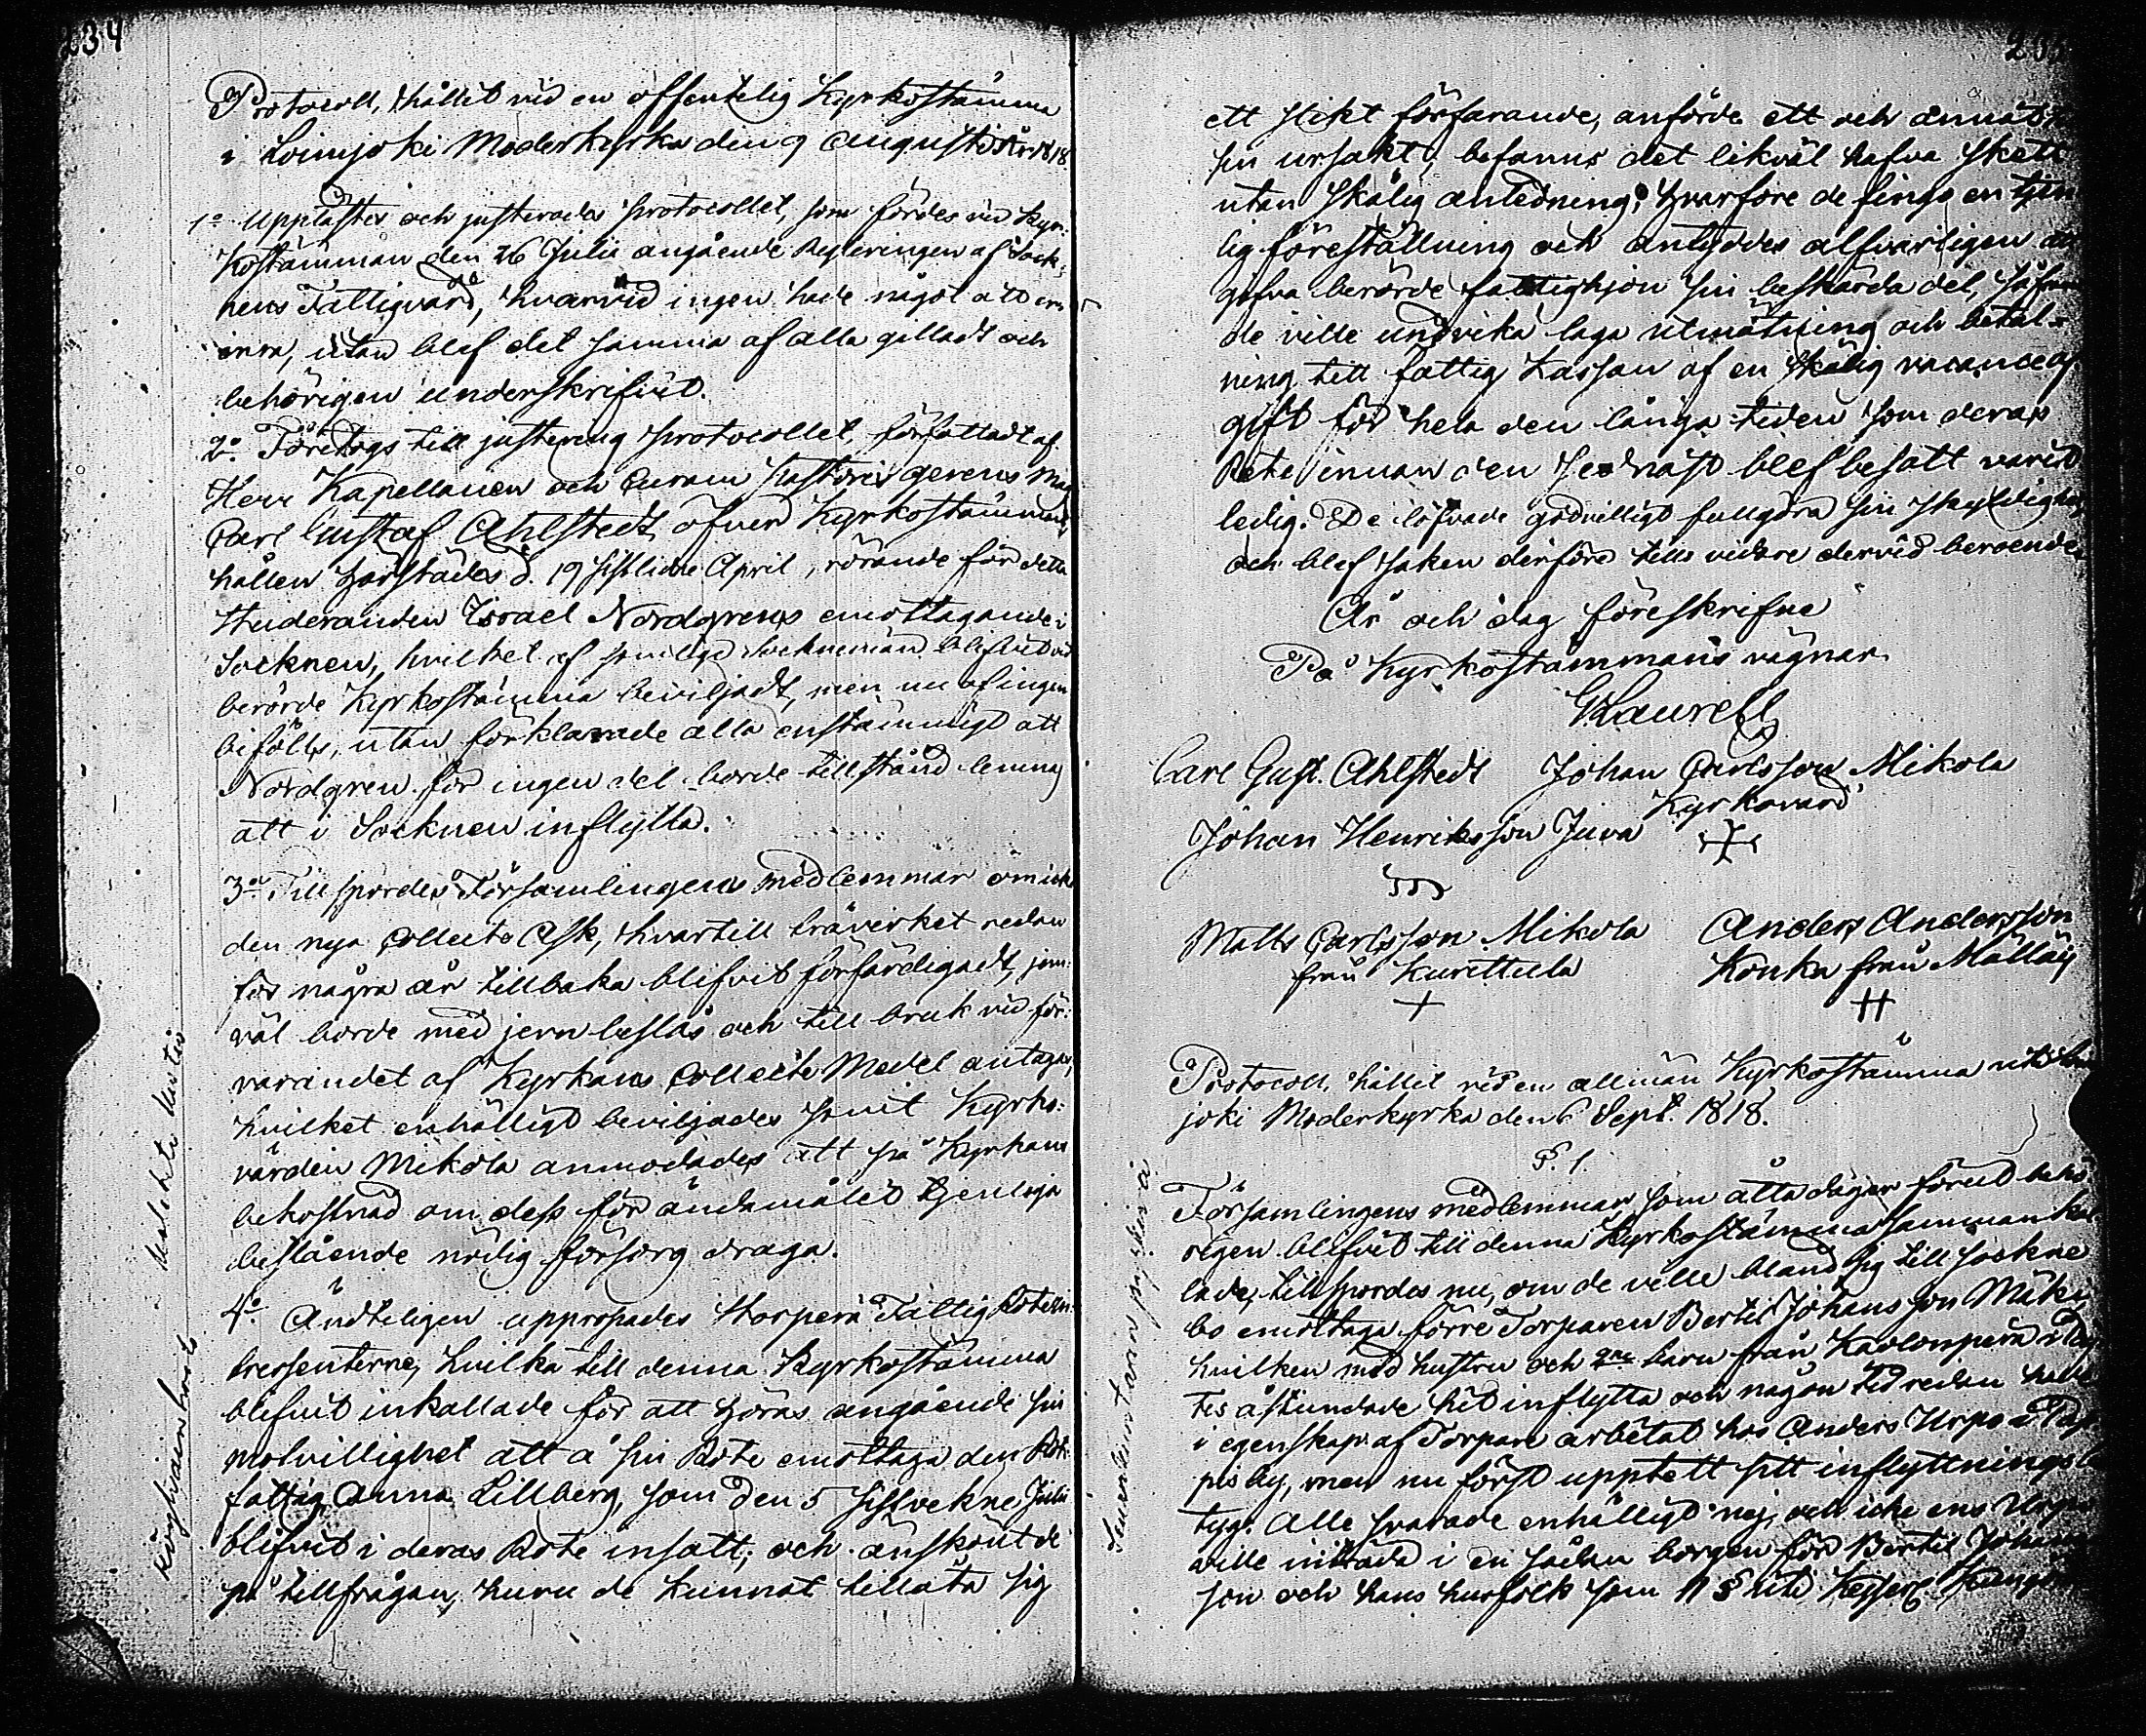 234
Protocoll, hållit vid en offentelig Kyrkostämma
i Loimjoki Moderkyrka den 9 Augusti År 1818.
1o Upplästes och justerades Protocollet, som fördes vid Kyr-
kostämman den 26 Julii angående Regleringen af Sock-
nens Fattigvård, hvarvid ingen hade något att er-
inra, utan blef det samma af alla gilladt och
behörigen underskrifvit.
2o Företogs till justering Protocollet, författadt af
Herr Kapellanen och Curam Pastoris gerens Mag
Carl Gustaf Ahlstedt öfver Kyrkostämman,
hållen härstädes d. 19 sistlidne April, rörande för detta
Studeranden Israel Nordgrens emottagande i
Socknen, hvilket af somlige Sockenmän blifvit vid
berörde Kyrkostämma beviljadt, men nu af ingen
bifölls, utan förklarade alla enstämmigt att
Nordgren för ingen del borde tillstånd lemnas
att i Socknen inflytta.
3o Tillspordes Församlingens medlemmar om icke
den nya Collecte Ask, hvartill träverket redan
för några år tillbaka blifvit förfärdigadt, jem-
väl borde med jern beslås och till bruk vid för-
varandet af Kyrkans Collecte Medel antagas,
hvilket enhälligt beviljades samt Kyrko-
värden Mikola anmodades att på Kyrkans
bekostnad om dess för ändamålet tjenliga
beslående nödig försorg draga.
4o Ändteligen uppropades Storperä Fattig Rotein-
tressenterne, hvilka till denna Kyrkostämma
blifvit inkallade för att höras angående sin
motvillighet att å sin Rote emottaga den Rote-
fattig Anna Lillberg, som den 5 sistvekne Julii
blifvit i deras Rote insatt; och änskönt de
på tillfrågan, huru de kunnat tillåta sig
ett slikt förfarande, anförde ett och annat till
sin ursäkt, befanns det likväl hafva skett
utan skälig anledning; hvarföre de fingo en tjen-
lig föreställning och antyddes alfvarligen att
gifva berörde fattighjon sin beskärda del, såframt
de ville undvika laga utmätning och betal-
ning till fattig Kassan af en skälig vacance af-
gift för hela den långa tiden som deras
Rote innan den sednast blef besatt varit
ledig. De löfvade godvilligt fullgöra sin skyldighet,
och blef saken derföre tills vidare dervid beroende.
År och dag föreskrifne
På Kyrkostämmans vägnar
Laurell
Carl Gust. Ahlstedt Johan Carlsson Mikola
Kyrkovärd
Johan Henriksson Juva
Matts Carlsson Mikola Anders Andersson
från Kurittula Konka från Mälläis
Protocoll, hållit vid en allmän Kyrkostämma uti Loim-
joki Moderkyrka den 6 Sept. 1818.
§. 1.
Församlingens medlemmar, som åtta dagar förut behö-
rigen blifvit till denna Kyrkostämma samman kal-
lade, tillspordes nu, om de ville bland sig till sockne
bo emottaga förre Torparen Bertil Johansson Mäki,
hvilken med hustru och 2ne barn från Karlonperä i
tis åstundade hit inflytta och någon tid redan hade
i egenskap af Torpare arbetat hos Anders Urpo i
pis by, men nu först upptett sitt inflyttnings be-
tyg. Alle svarade enhälligt nej, och icke ens Urpo
ville inträda i en sådan borgen för Bertil Johans-
son och hans husfolk som 11 § uti Kejserl.